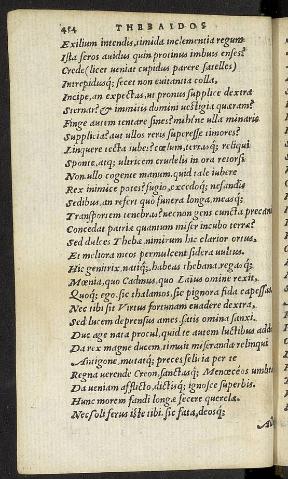 454 THEBAIDOS
Exilium intendis, timida inclementia regum
Ista feros avidus quin protinus imbuis enses?
Crede (licet veniat cupidus parere satelles)
Intrepidusq; secet non evitantia colla,
Incipe, an expectas, ut pronus supplice dextra
Sternar? & immitis domini vestigia quæram?
Finge autem tentare sines? mihi'ne ulla minaris
Supplicia? aut ullos reris supcresse timores?
Linquere tecta iubes? cœlum, terrasq; reliqui
Sponte, atq; ultricem crudelis in ora retorsi
Non ullo cogente manum. quid tale iubere
Rex inimice potes? fugio, excedoq; nefandis
Sedibus, an refert quò funera longa, measq;
Transportem tenebras? nec non gens cuncta precanti
Concedat patria quantum miser incubo terræ?
Sed dulces Thebæ. nimirum hic clarior ortus,
Et meliora meos permulcent sidera vultus.
Hic genitrix, natiq;. habeas thebana, regasq;
Mœnia, quo Cadmus, quo Laius omine rexit,
Quoq; ego. sic thalamos, sic pignora fida capessas
Nec tibi sit Virtus fortunam evadere dextra,
Sed lucem deprensus ames. satis omina sanxi.
Duc age nata procul, quid te autem luctibus addo
Da rex magne ducem. timuit miseranda relinqui
Antigone, mutatq; preces felicia per te
Regna verende Creon, sanctasq; Menœceos umbras
Da veniam afflicto, dictisq; ignosce superbis.
Hunc morem fandi longæ fecere querelæ.
Nec soli ferus iste tibi. sic fata, deosq;